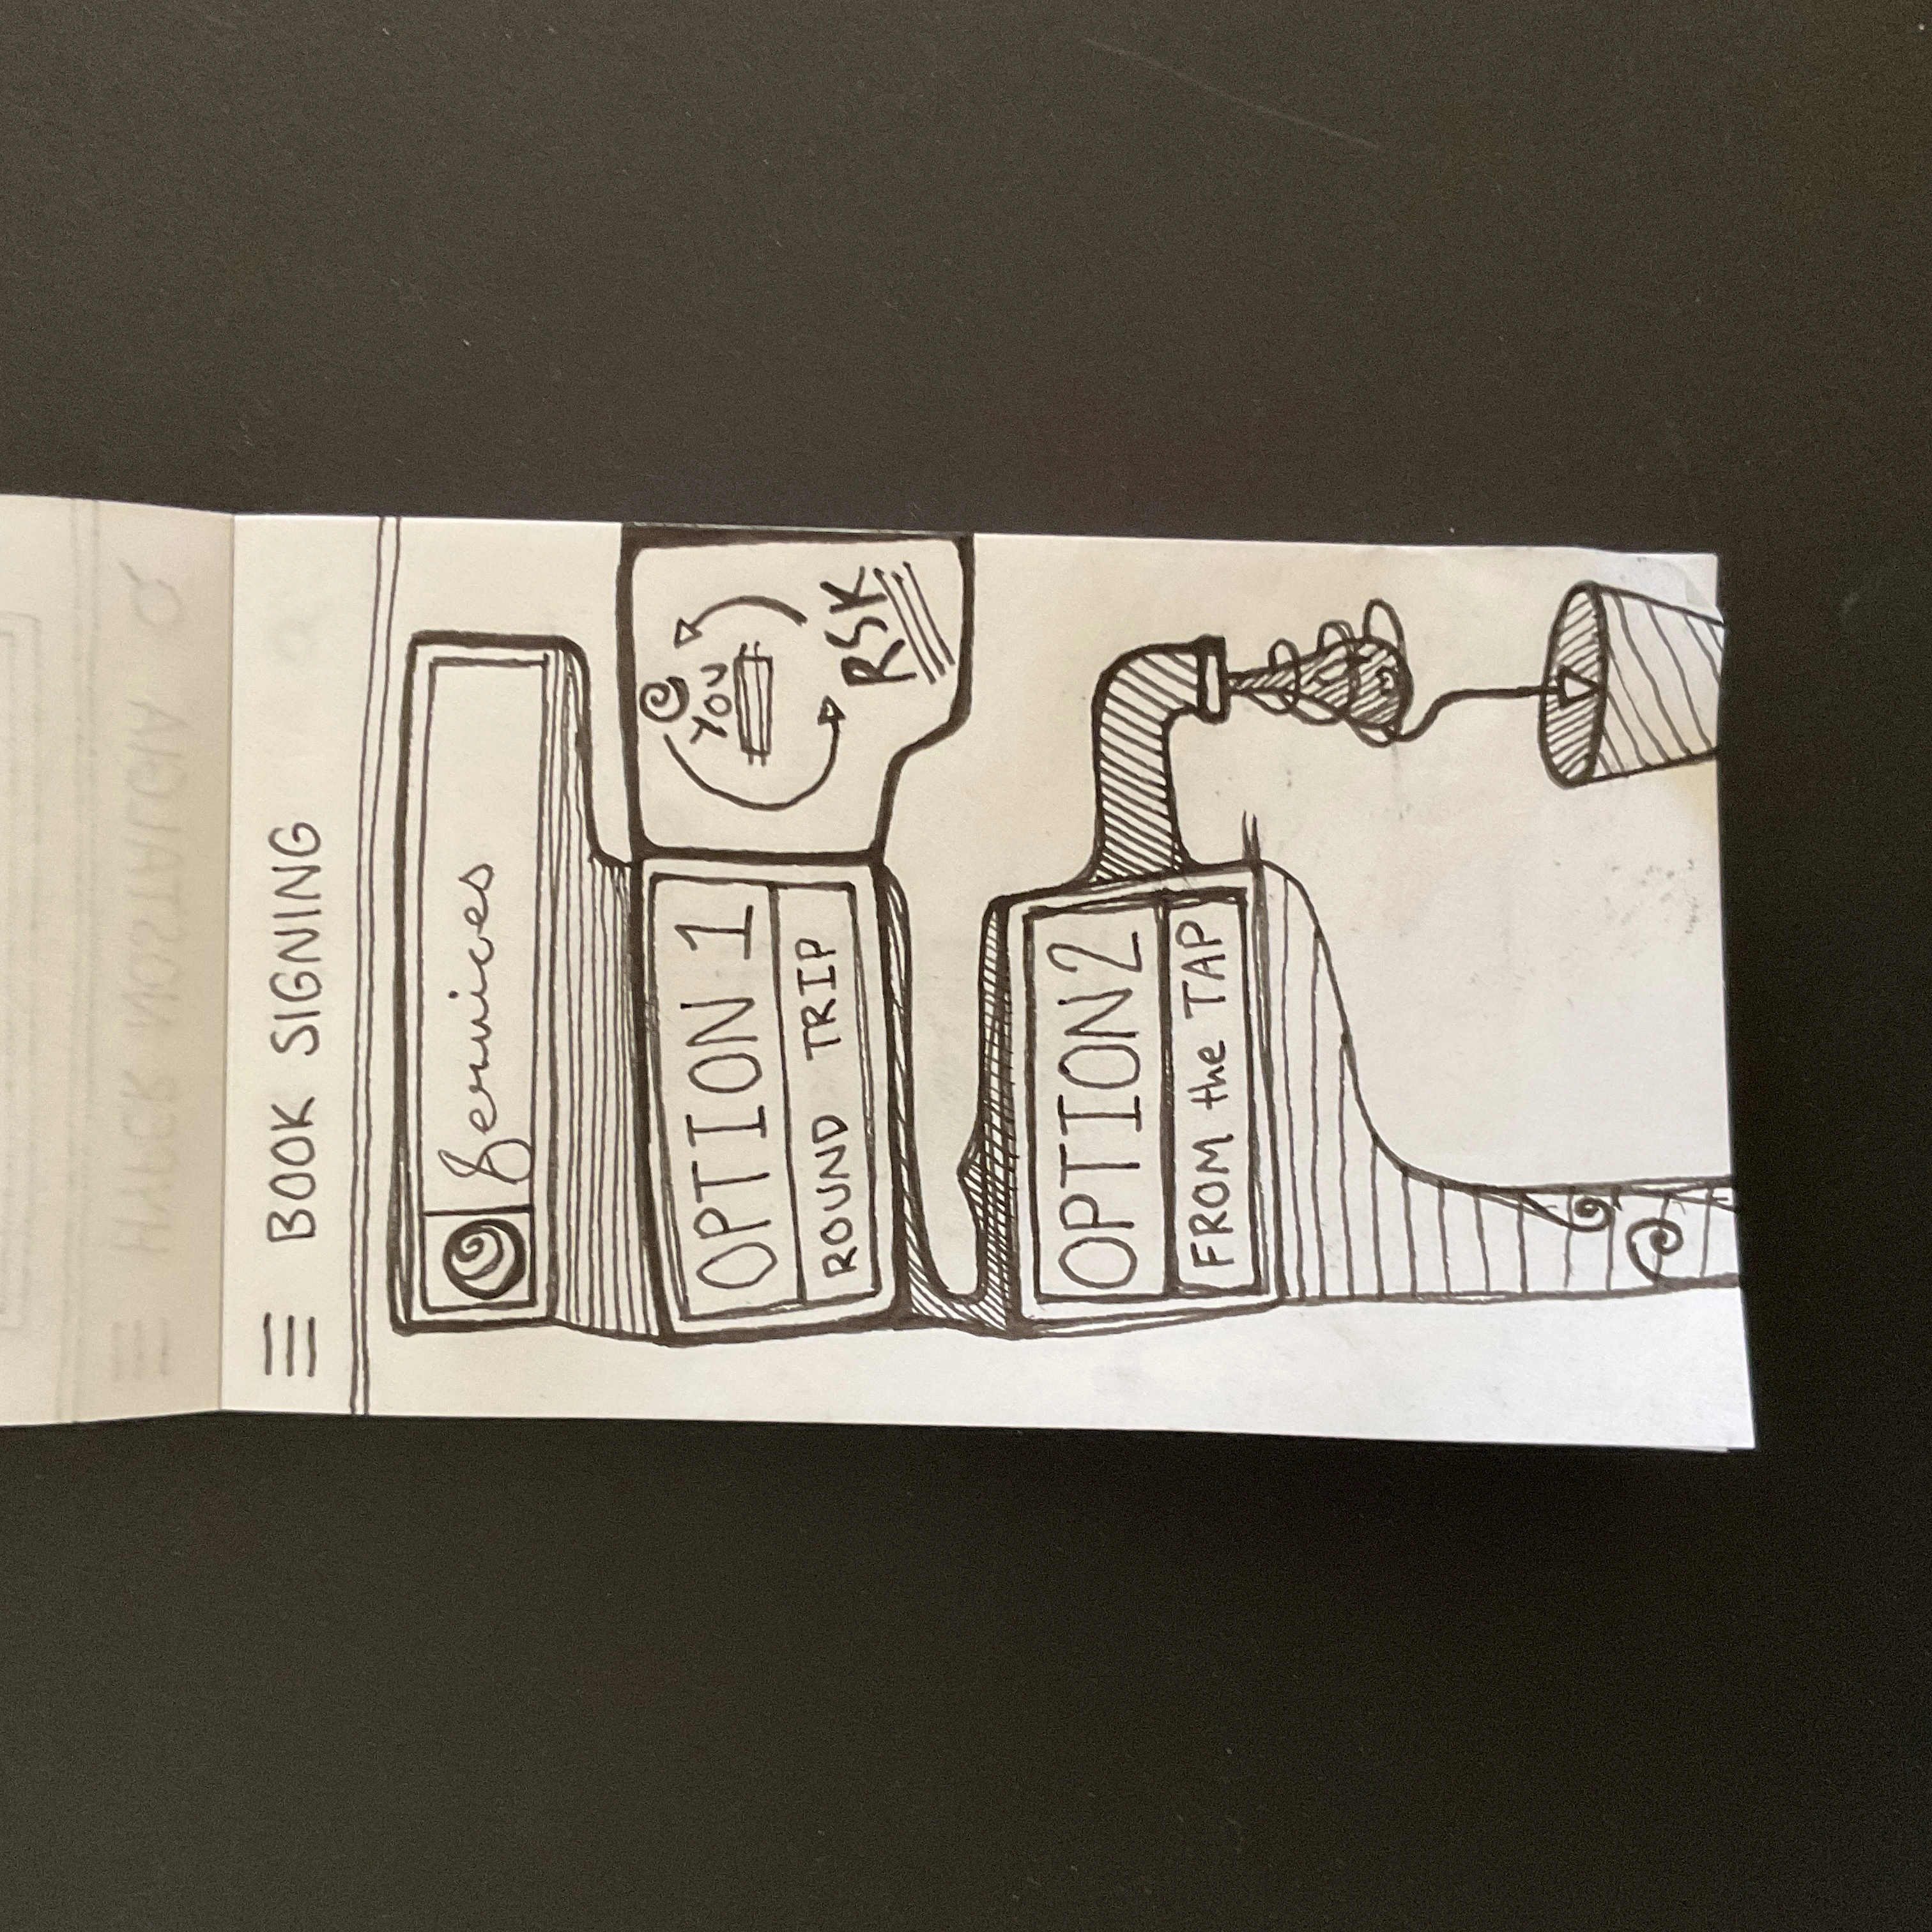 BOOK SIGNING
Services
OPTION 1
ROUND TRIP
YOU
RSK
OPTION 2
FROM the TAP
HYPER NOSTALGIA